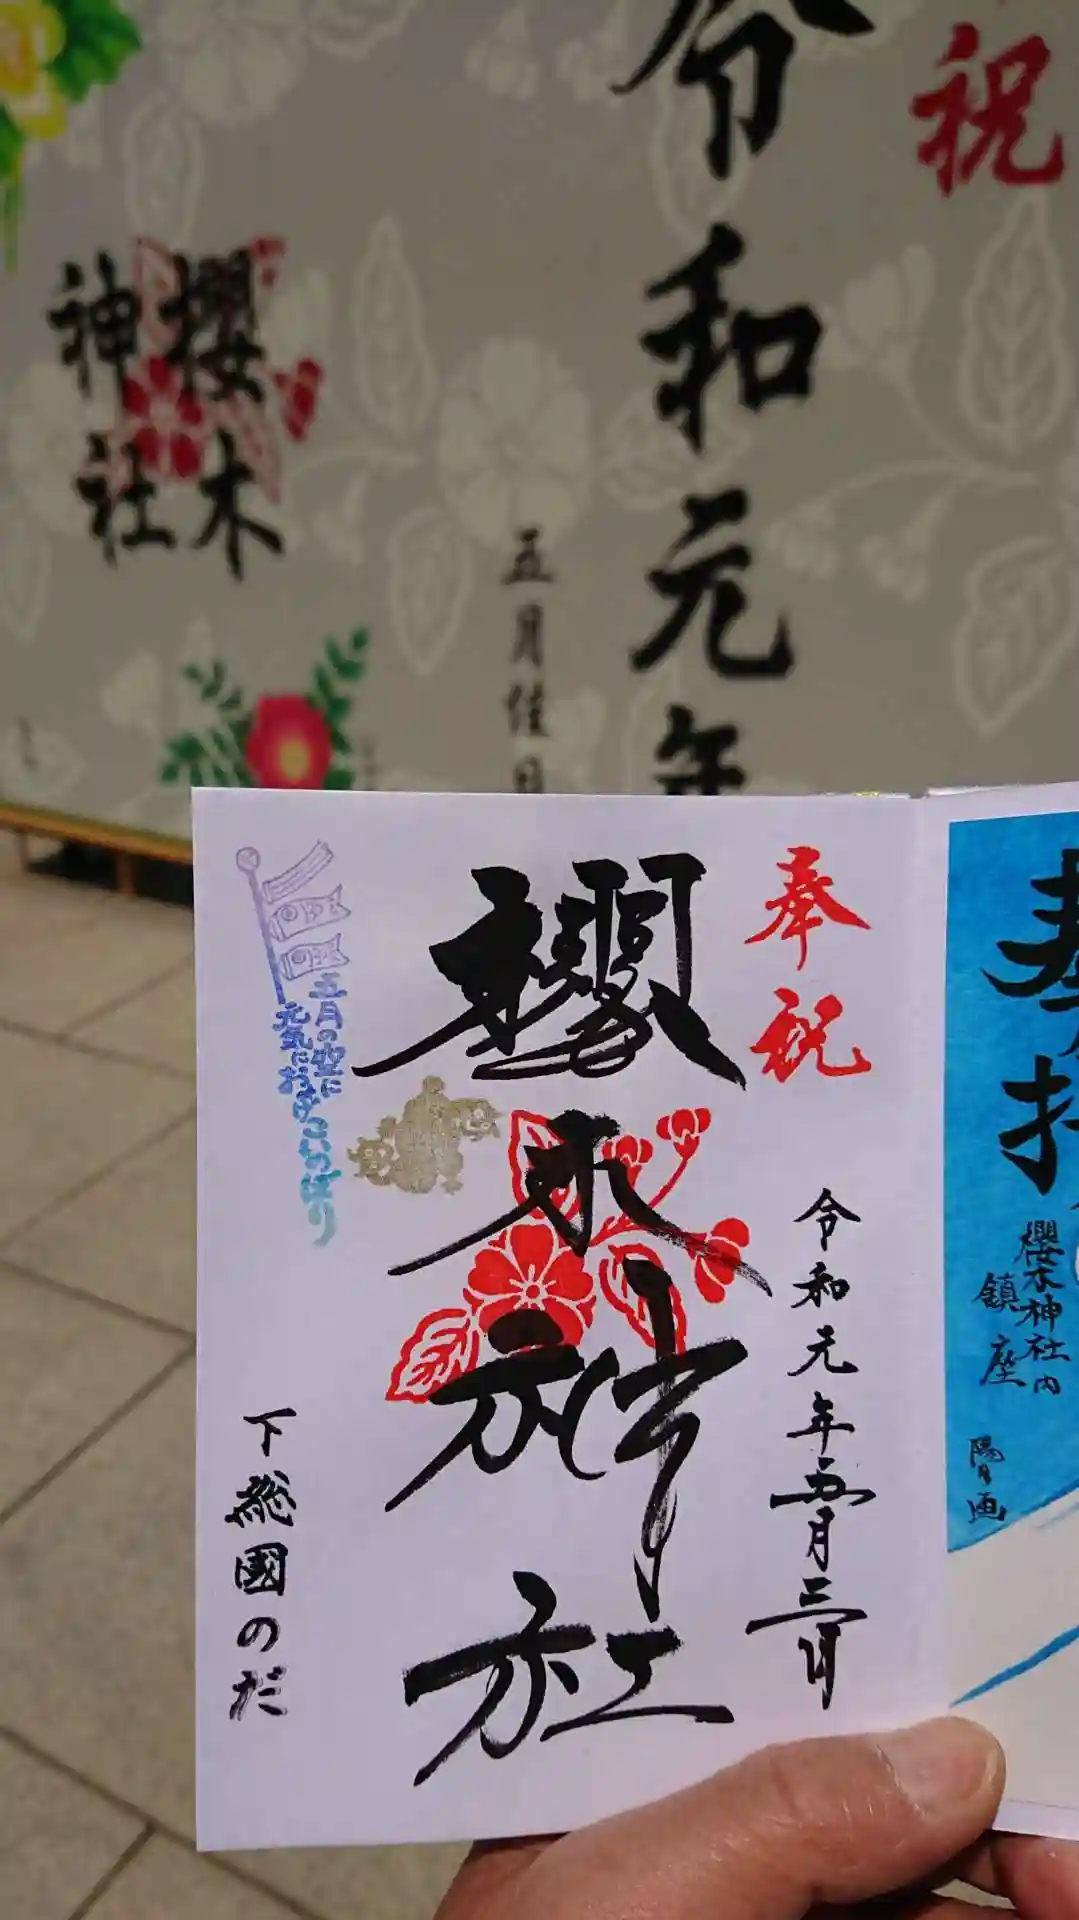 祝
令和元年
五月佳日
櫻木
神社
奉祝
令和元年五月三日
櫻木神社
五月の空に
元気におよぐこいのぼり
下総國のだ
櫻木神社内
鎮座
陽日画